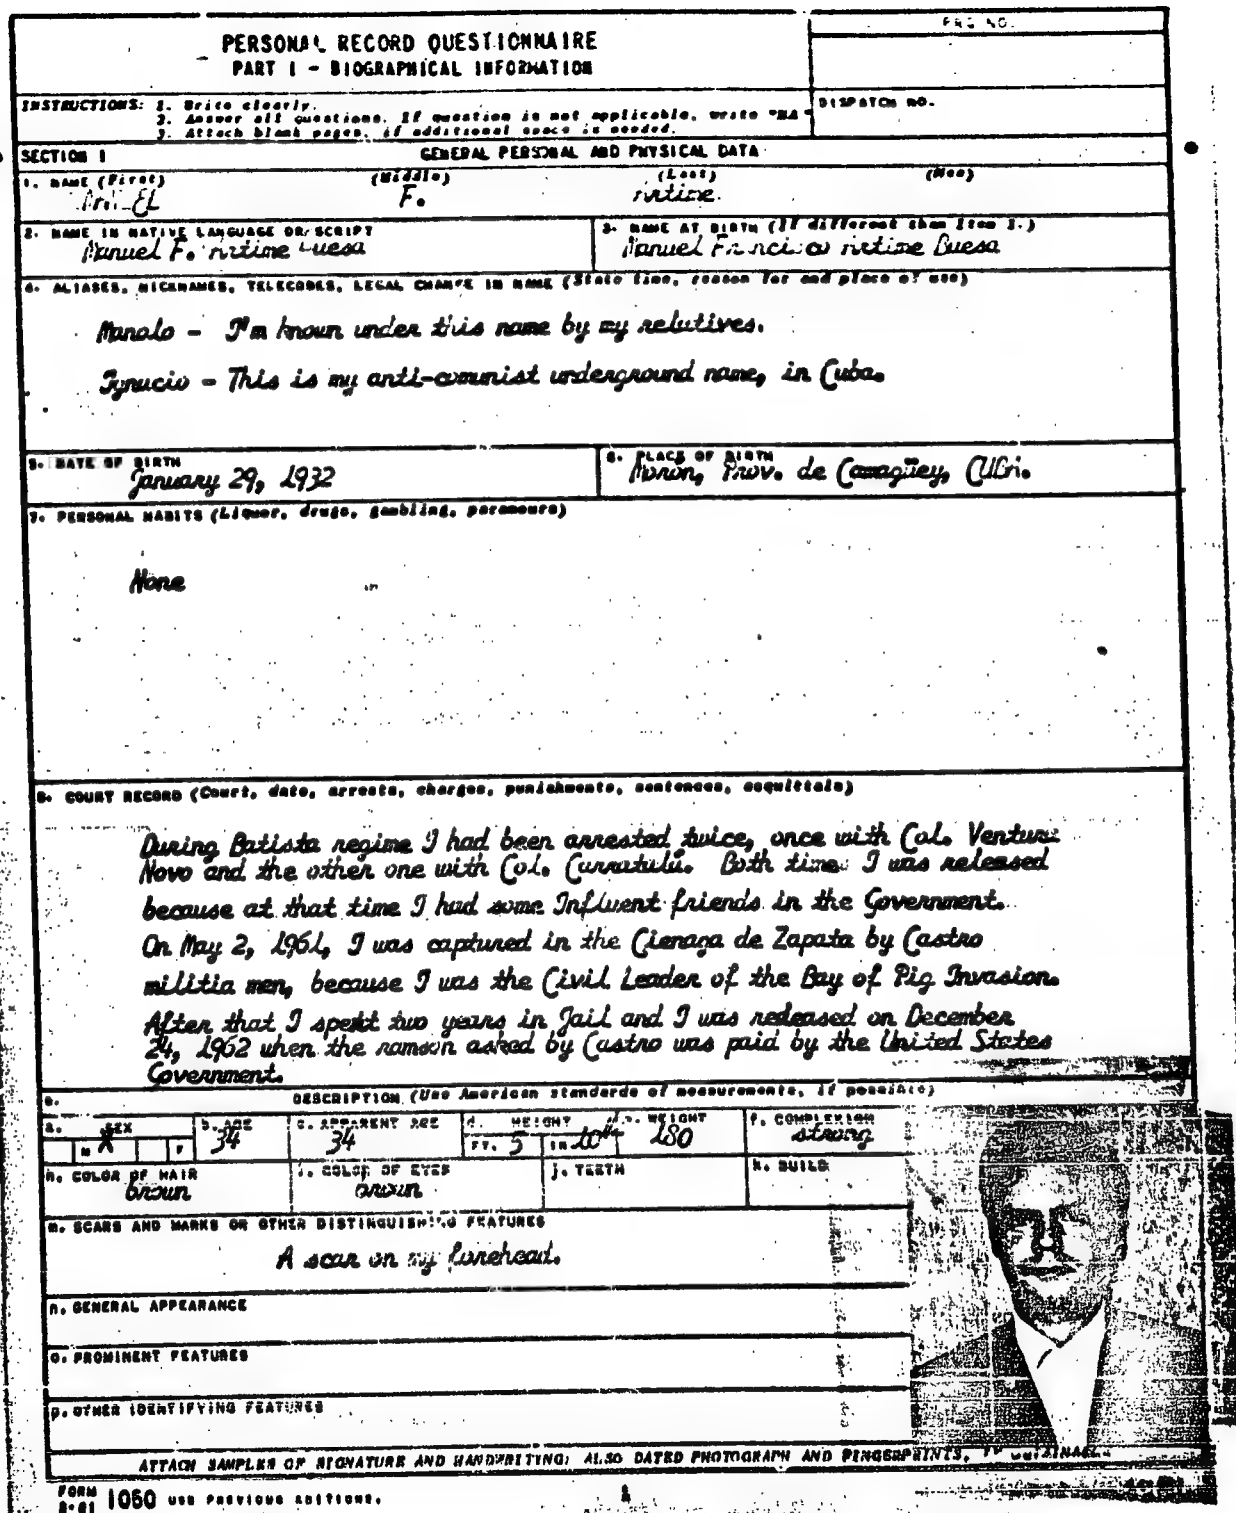 PRG NO.
PERSONAL RECORD QUESTIONNAIRE
PART I - BIOGRAPHICAL INFORMATION
INSTRUCTIONS: 1. Write clearly.
2. Answer all questions. If question is not applicable, write "NA"
3. Attach blank pages, if additional space is needed.
DISPATCH NO.
SECTION I GENERAL PERSONAL AND PHYSICAL DATA
1. NAME (First) (Middle) (Last)
F. Artime
2. NAME IN NATIVE LANGUAGE OR SCRIPT 3. NAME AT BIRTH (If different than Item 1.)
Manuel F. Artime Buesa Manuel Francisco Artime Buesa
4. ALIASES, NICKNAMES, TELECODES, LEGAL CHANGE IN NAME (State time, reason for and place of use)
Manolo - I'm known under this name by my relatives.
Ignacio - This is my anti-comunist underground name, in Cuba.
5. DATE OF BIRTH 6. PLACE OF BIRTH
January 29, 1932 Moron, Prov. de Camagüey, CUBA.
7. PERSONAL HABITS (Liquor, drugs, gambling, paramours)
None
8. COURT RECORD (Court, date, arrests, charges, punishments, sentences, acquittals)
During Batista regime I had been arrested twice, once with Col. Ventura
Novo and the other one with Col. Both times I was released
because at that time I had some Influent friends in the Government.
On May 2, 1961, I was captured in the Cienaga de Zapata by Castro
militia men, because I was the Civil Leader of the Bay of Pig Invasion.
After that I spent two years in Jail and I was released on December
24, 1962 when the ramson asked by Castro was paid by the United States
Government.
9. DESCRIPTION (Use American standards of measurements, if possible)
a. SEX b. AGE c. APPARENT AGE d. HEIGHT e. WEIGHT f. COMPLEXION
M X F 34 34 FT. 5 IN 10 180 strong
h. COLOR OF HAIR i. COLOR OF EYES j. TEETH k. BUILD
brown brown
m. SCARS AND MARKS OR OTHER DISTINGUISHING FEATURES
A scar on my forehead.
n. GENERAL APPEARANCE
o. PROMINENT FEATURES
p. OTHER IDENTIFYING FEATURES
ATTACH SAMPLES OF SIGNATURE AND HANDWRITING; ALSO DATED PHOTOGRAPH AND FINGERPRINTS, IF OBTAINABLE
FORM 1050 USE PREVIOUS EDITIONS.